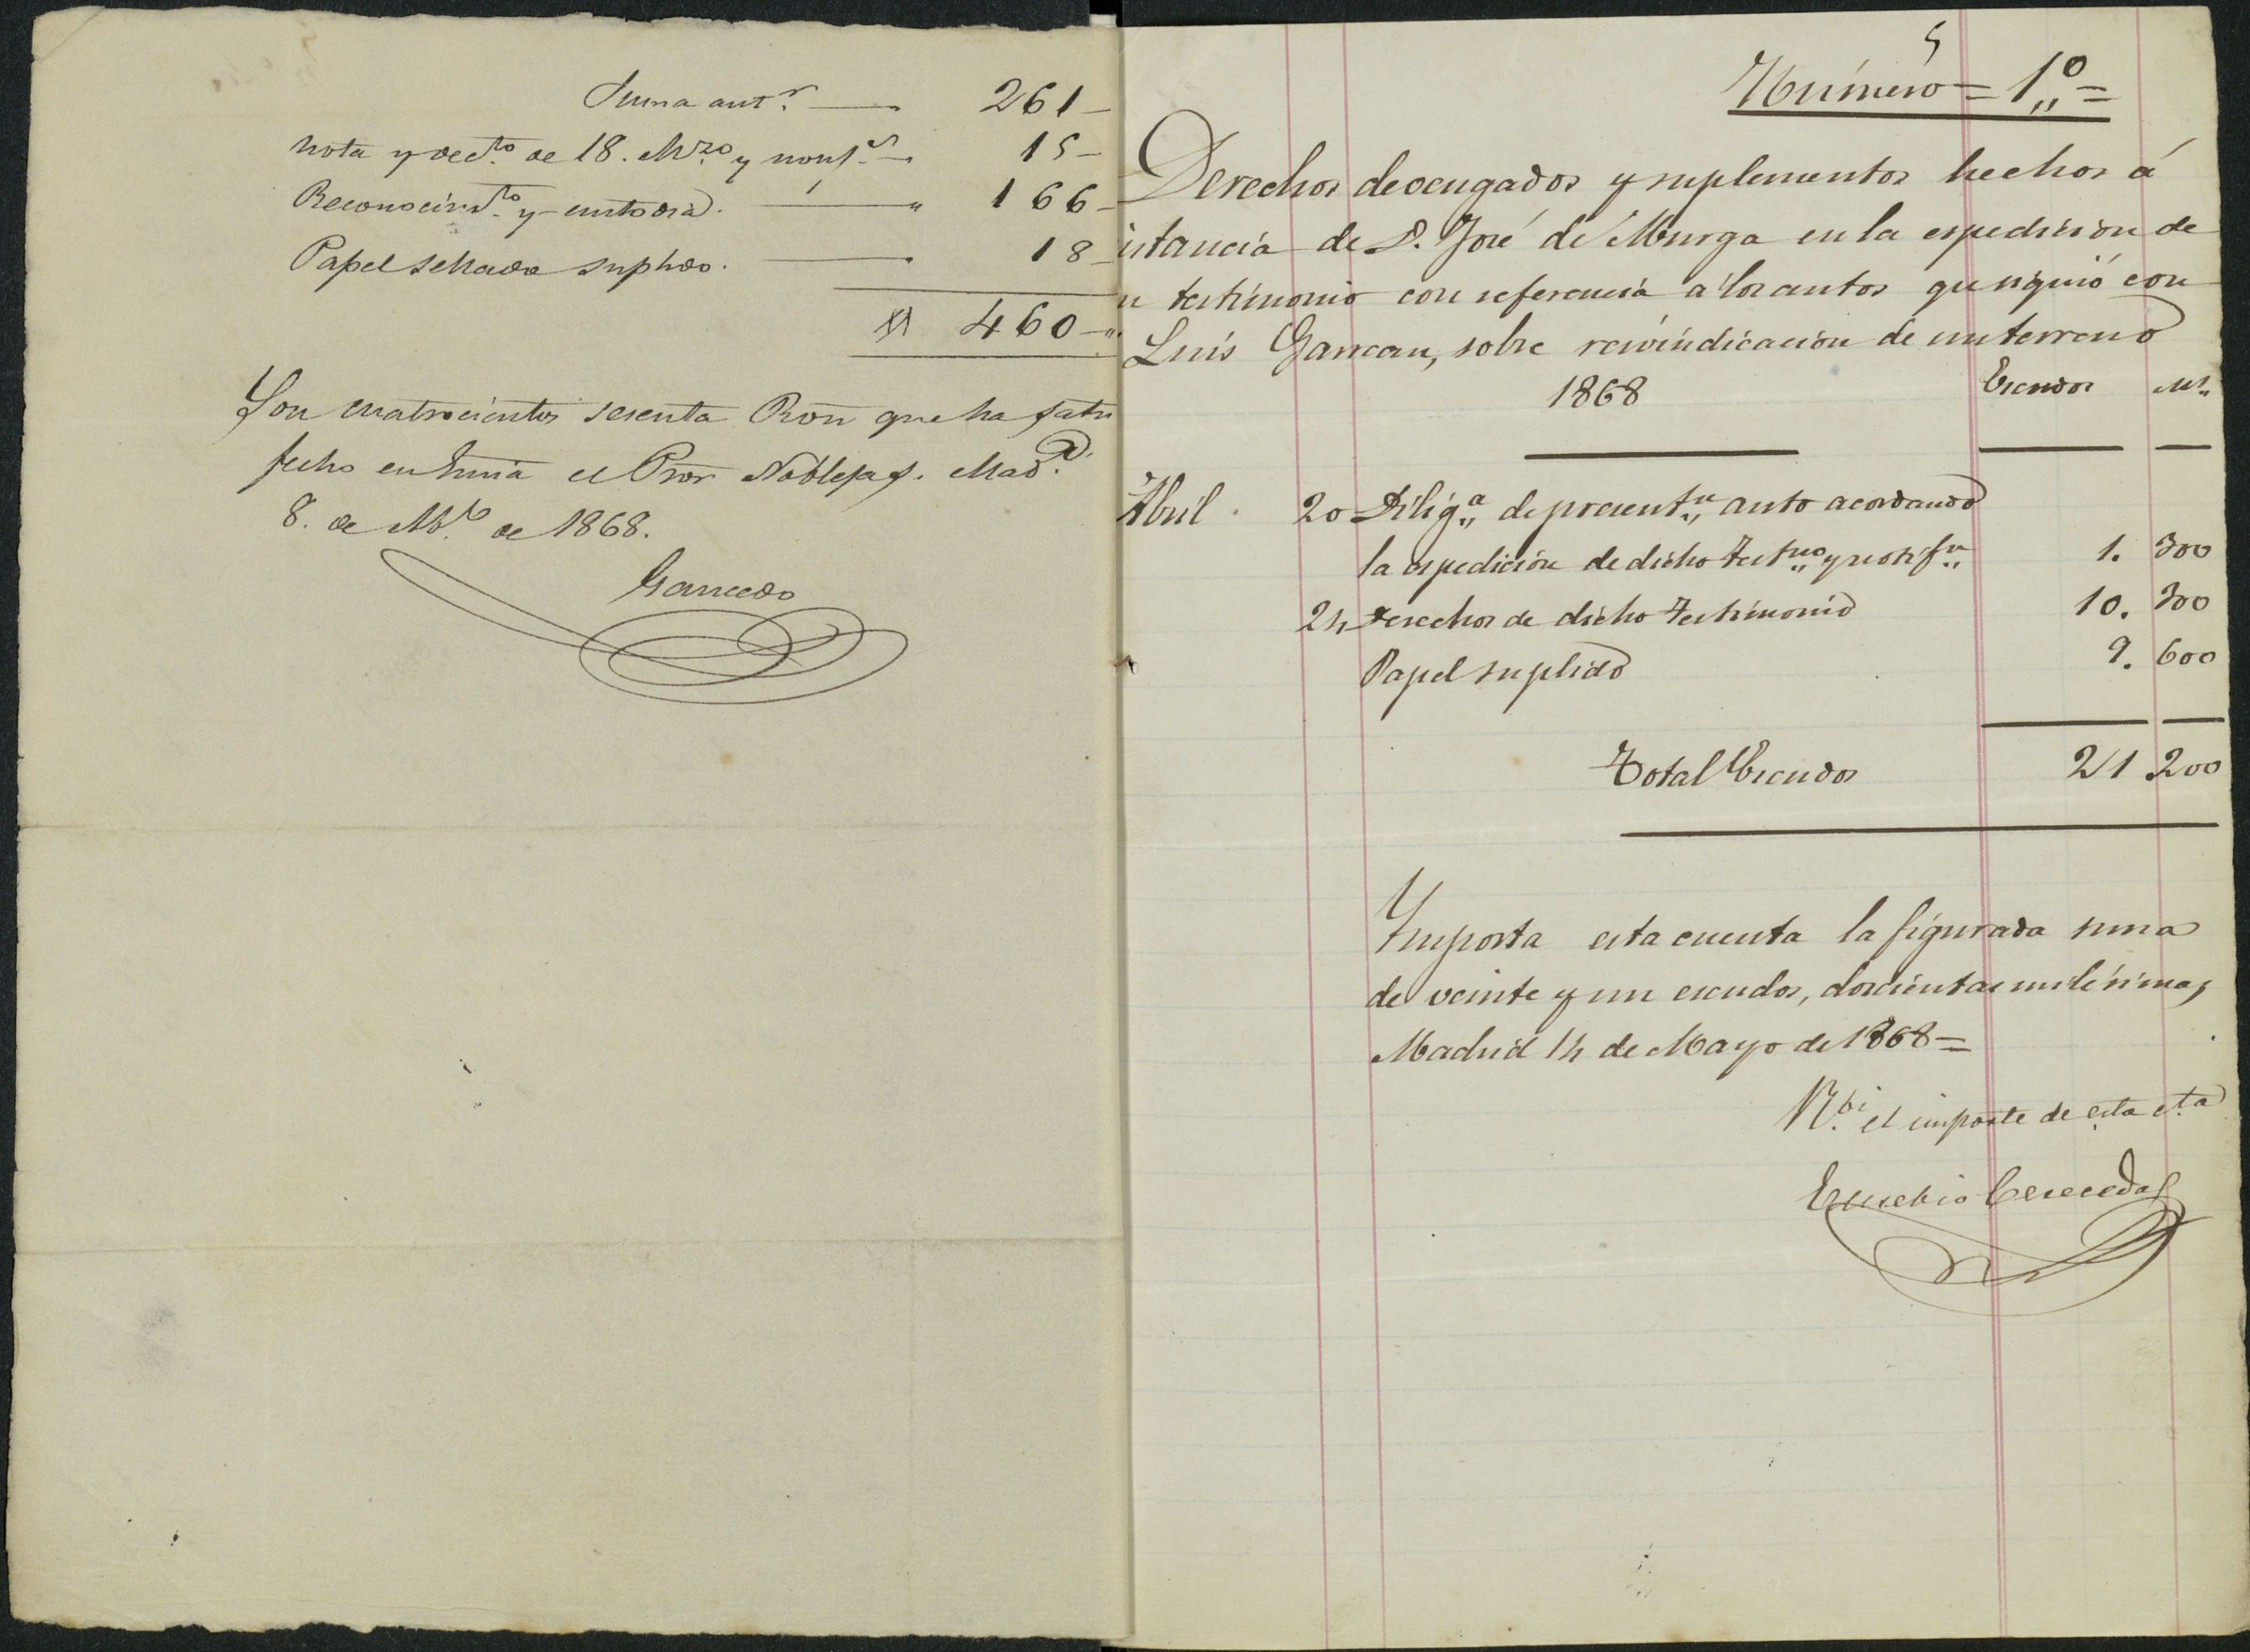 Suma antr. — 261 —
nota y decto. de 18. Mzo. y notfs. — 15 —
Reconocimto. y custodia. — " 166 —
Papel sellado suplido. — 18 —
460 — "
Son cuatrocientos sesenta Ron que ha satis
fecho en Suma el Pror Noblejas. Madd.
8. de Abl. de 1868.
Gancedo
5
Número = 1º =
Derechos devengados y suplementos hechos á
instancia de D. José de Murga en la espedicion de
un testimonio con referencia á los autos que siguió con
Luis Garreau, sobre reivindicacion de un terreno
1868 Escudos Ms.
Abril . 20 Diliga. de presentn. auto acordando
la espedicion de dicho Testmo. y notifn. 1. 300
24 Derechos de dicho Testimonio 10. 300
Papel suplido 9. 600
Total Escudos 21 200
Importa esta cuenta la figurada suma
de veinte y un escudos, doscientas milésimas
Madrid 14 de Mayo de 1868 =
Rbi. el importe de esta cta
Eusebio Cereceda